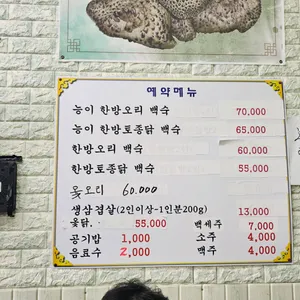 예약메뉴
능이 한방오리 백숙 70,000
능이 한방토종닭 백숙 65,000
한방오리 백숙 60,000
한방토종닭 백숙 55,000
옻오리 60.000
생삼겹살(2인이상-1인분200g) 13,000
옻닭. 55,000 백세주 7,000
공기밥 1,000 소주 4,000
음료수 2,000 맥주 4,000